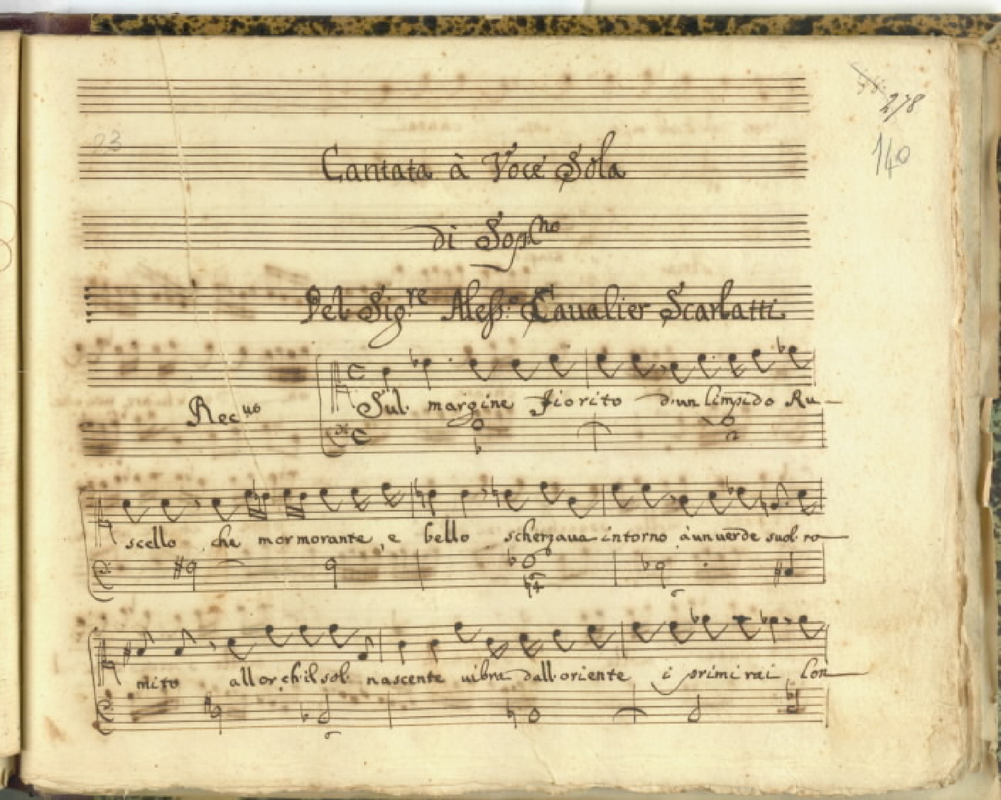 278
140
23
Cantata à Voce Sola
di Sop.no
Del Sig.re Aless.o Cavalier Scarlatti
Rec.vo
Sul margine fiorito d'un limpido Ru-
scello che mormorante e bello scherzaua intorno à un uerde suol ro
mito allor ch'il sol nascente uibra dall oriente i primi rai Con